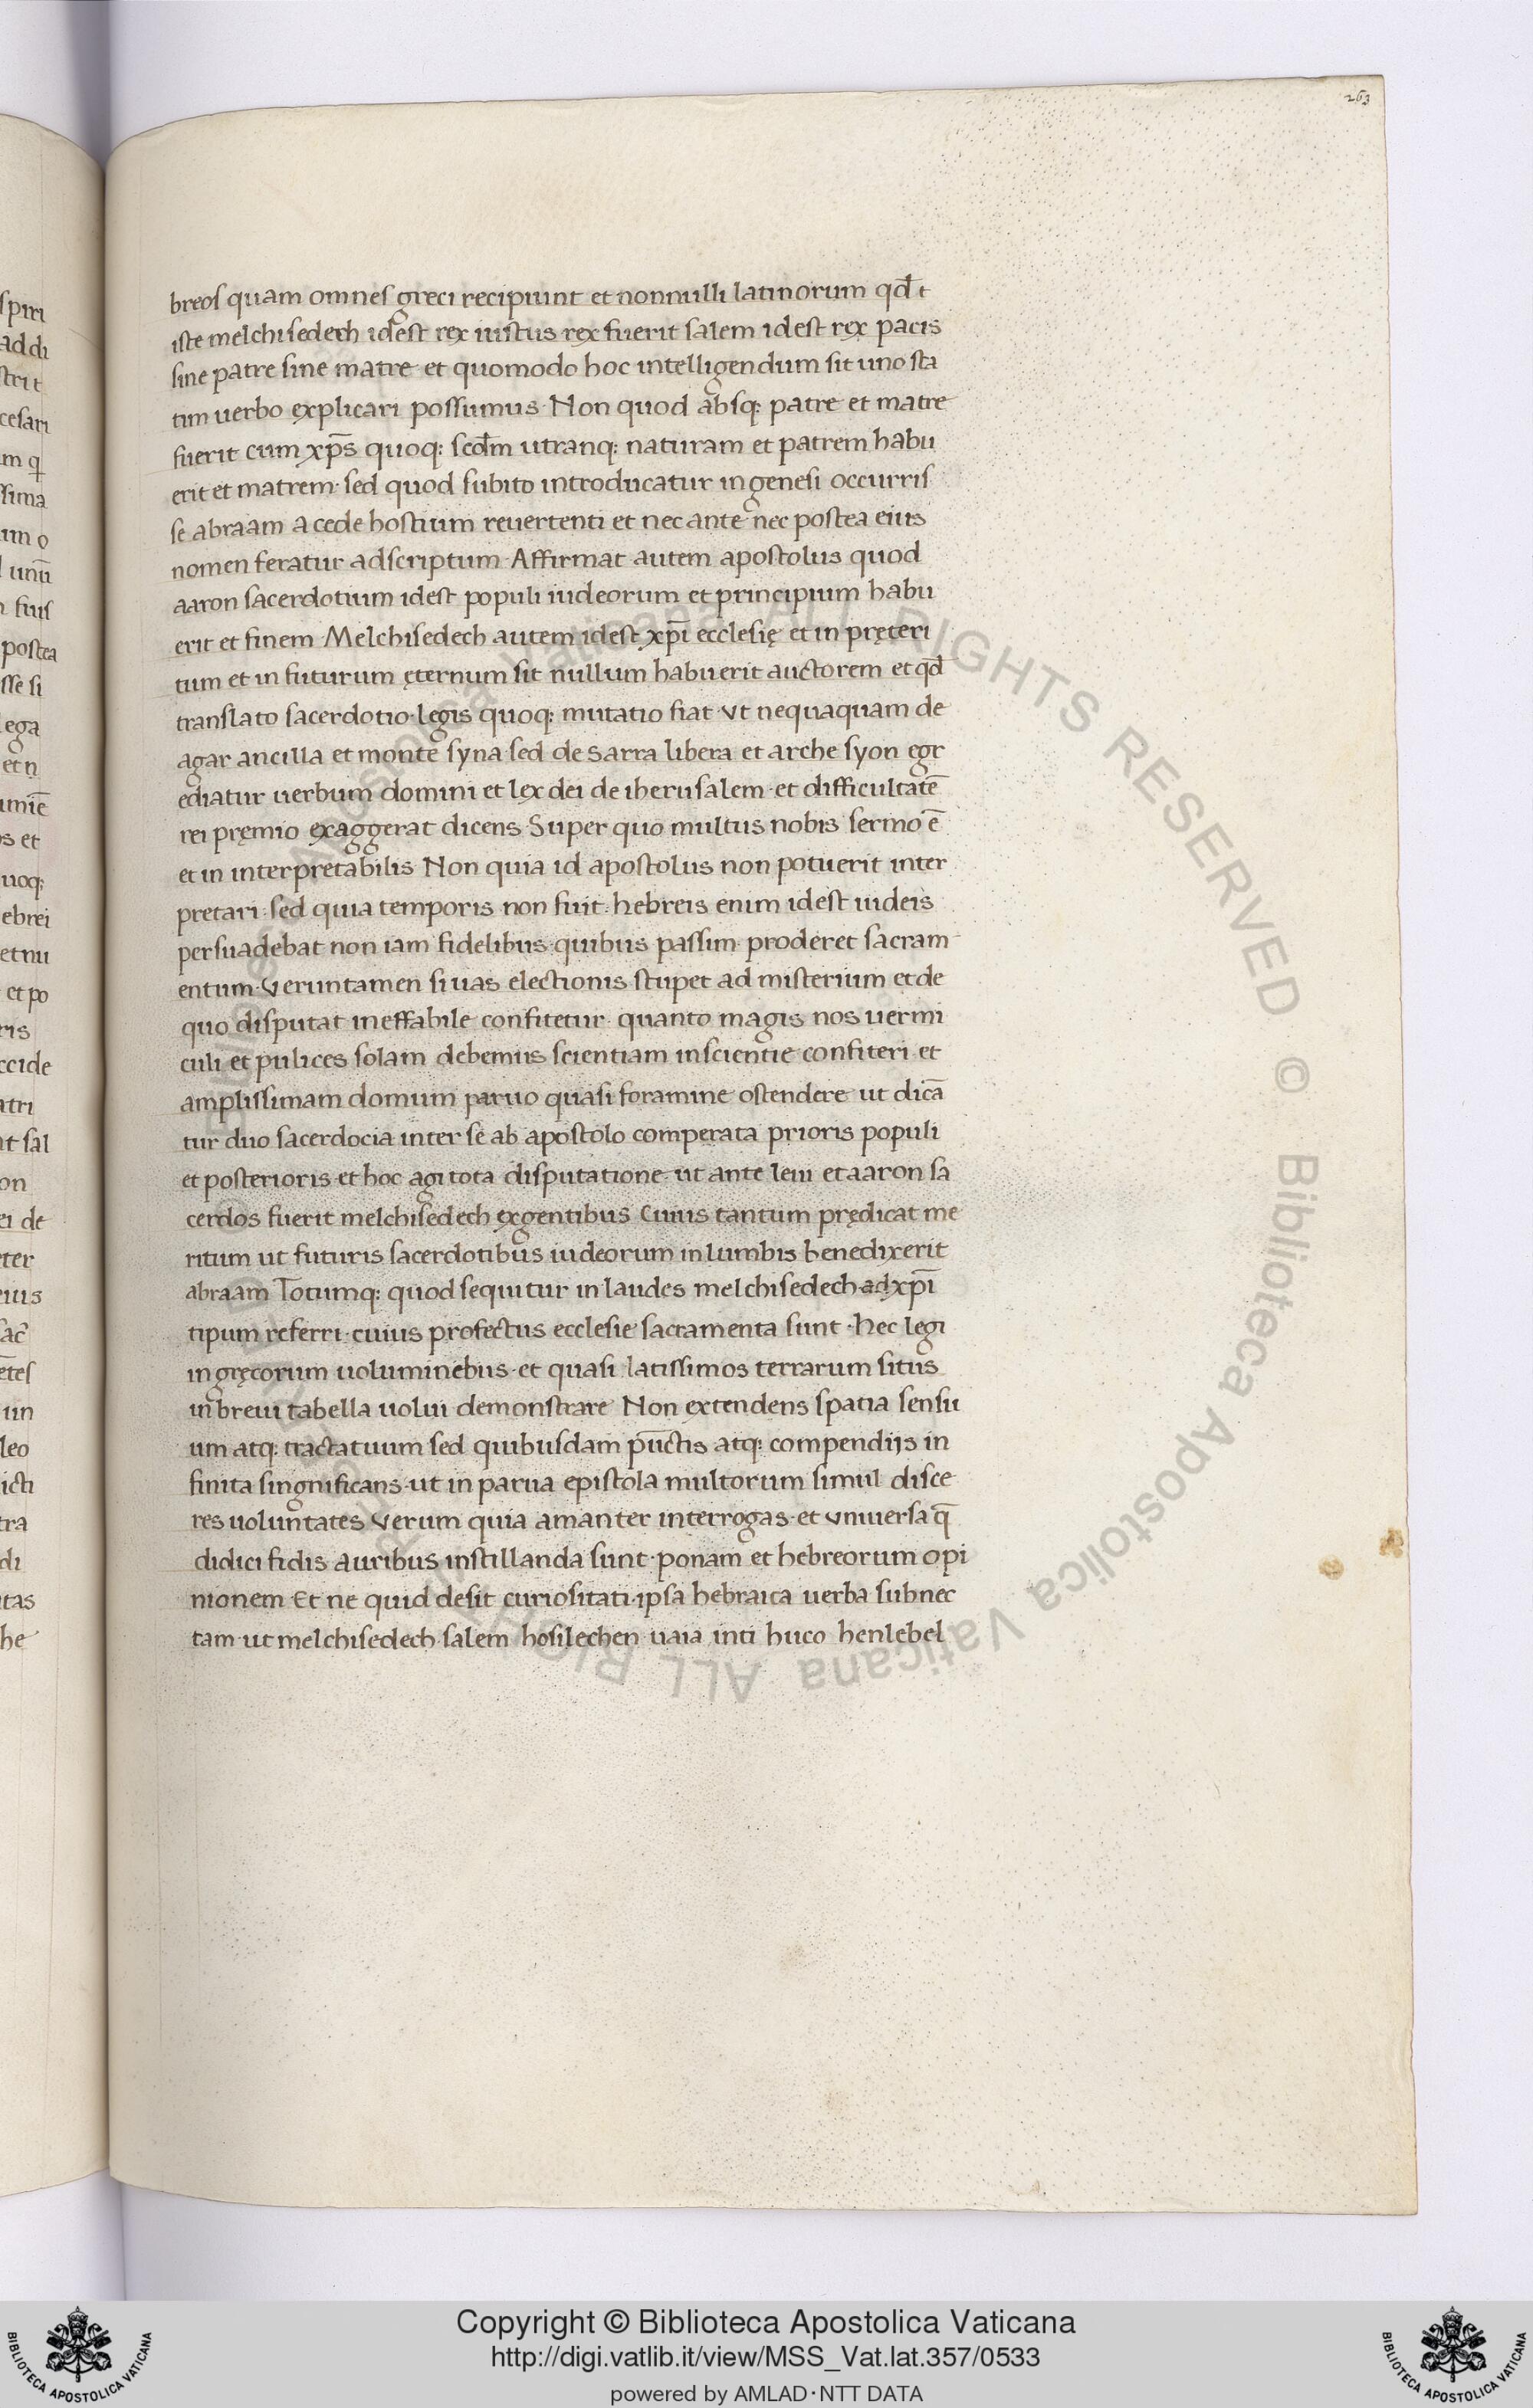 263
breos quam omnes greci recipiunt et nonnulli latinorum qđ t
iste melchisedech idest rex iustus rex fuerit salem idest rex pacis
sine patre sine matre et quomodo hoc intelligendum sit uno sta
tim uerbo explicari possumus · Non quod absq; patre et matre
fuerit cum xp̄s quoq; scđm utranq; naturam et patrem habu
erit et matrem · sed quod subito introducatur in genesi occurris
se abraam a cede hostium reuertenti et nec ante nec postea eius
nomen feratur adscriptum · Affirmat autem apostolus quod
aaron sacerdotium idest populi iudeorum et principium habu
erit et finem · Melchisedech autem idest xp̄i ecclesię et in pręteri
tum et in futurum ęternum sit nullum habuerit auctorem et qđ
translato sacerdotio · legis quoq; mutatio fiat · Vt nequaquam de
agar ancilla et monte syna · sed de sarra libera et arche syon egr
ediatur uerbum domini et lex dei de iherusalem · et difficultatē
rei pręmio exaggerat dicens · Super quo multus nobis sermo ē
et in interpretabilis · Non quia id apostolus non potuerit inter
pretari · sed quia temporis non fuit · hebreis enim idest iudeis
persuadebat non iam fidelibus · quibus passim proderet sacram
entum · Veruntamen si uas electionis stupet ad misterium et de
quo disputat ineffabile confitetur · quanto magis nos uermi
culi et pulices solam debemus scientiam inscientie confiteri · et
amplissimam domum paruo quasi foramine ostendere ut dicā
tur duo sacerdocia inter se ab apostolo comperata prioris populi
et posterioris · et hoc agi tota disputatione · ut ante leui et aaron sa
cerdos fuerit melchisedech ex gentibus Cuius tantum prędicat me
ritum ut futuris sacerdotibus iudeorum in lumbis benedixerit
abraam Totumq; quod sequitur in laudes melchisedech ad xp̄i
tipum referri · cuius profectus ecclesie sacramenta sunt · Hec legi
in gręcorum uoluminebus · et quasi latissimos terrarum situs
in breui tabella uolui demonstrare Non extendens spatia sensu
um atq; tractatuum sed quibusdam pūctis atq; compendijs in
finita singnificans · ut in parua epistola multorum simul disce
res uoluntates Verum quia amanter interrogas · et Vniuersa q̄
didici fidis auribus instillanda sunt · ponam et hebreorum opi
nionem Et ne quid desit curiositati · ipsa hebraica uerba subnec
tam · ut melchisedech · salem hosilechen · uaia inti huco henlebel
Copyright © Biblioteca Apostolica Vaticana
http://digi.vatlib.it/view/MSS_Vat.lat.357/0533
powered by AMLAD · NTT DATA